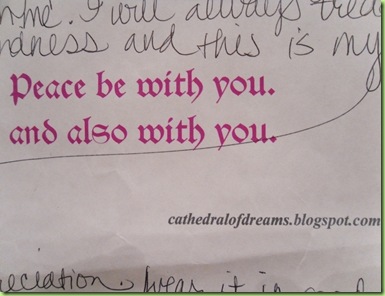 me. I will always
ndness and this is my
Peace be with you.
and also with you.
cathedralofdreams.blogspot.com
reciation. wear it in